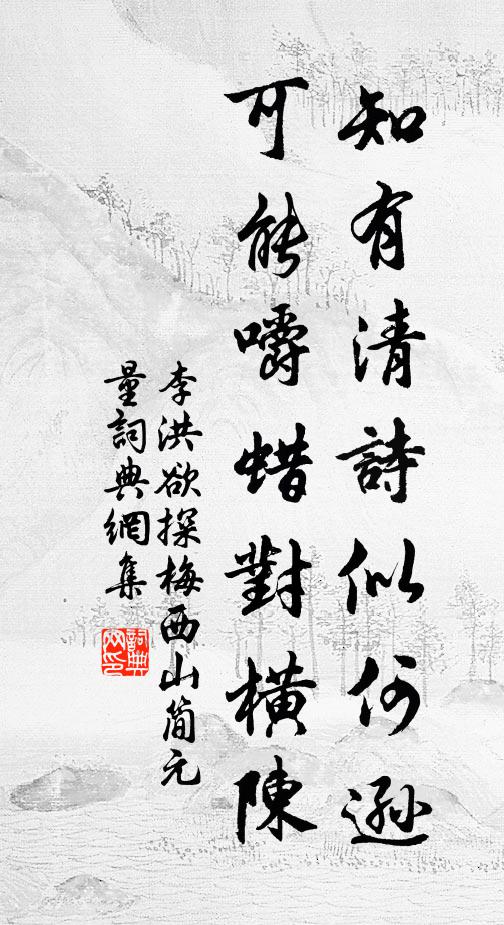 知有清詩似何遜
可能嚼蜡對橫陳
李洪欲探梅西山簡元
量詞典網集
詞典網印